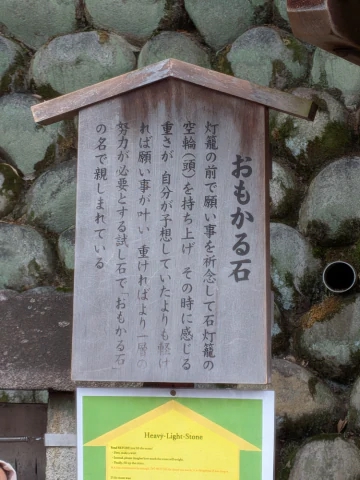 おもかる石
灯籠の前で願い事を祈念して石灯籠の
空輪（頭）を持ち上げ その時に感じる
重さが、自分が予想していたよりも軽け
れば願い事が叶い 重ければより一層の
努力が必要とする試し石で“おもかる石”
の名で親しまれている
Heavy-Light-Stone